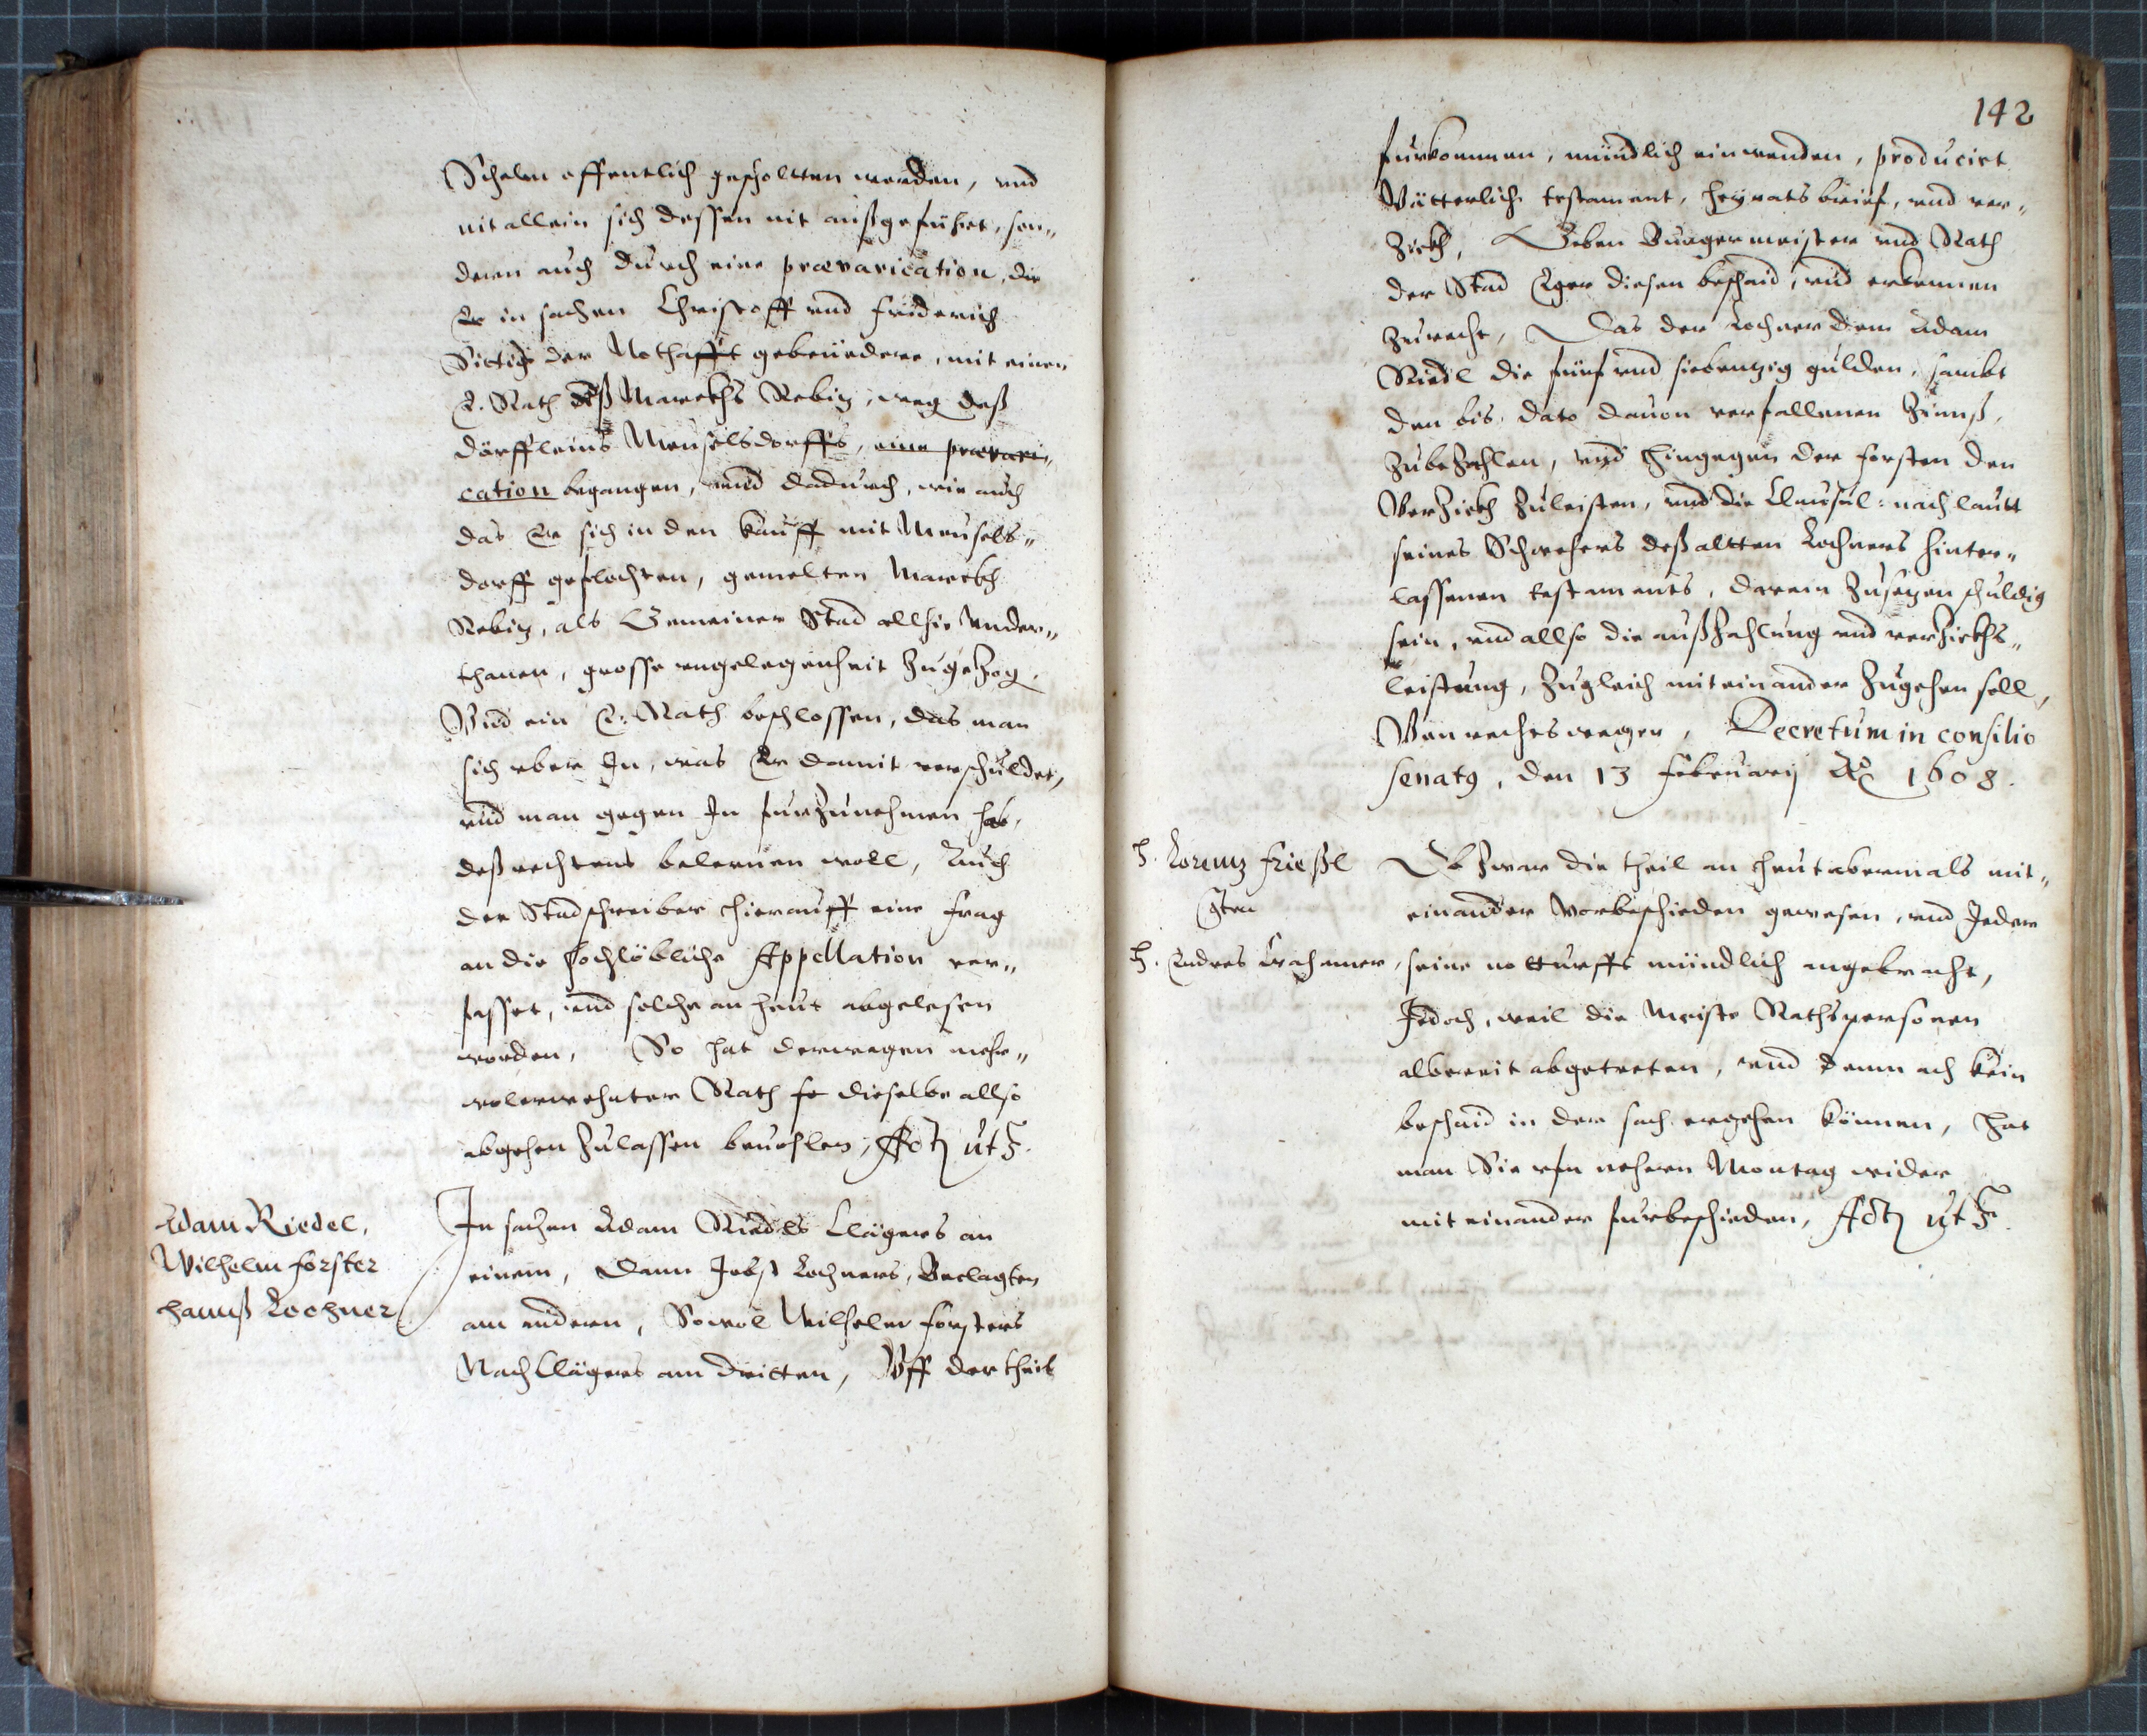 Schelm offentlich gescholtten worden, vnd
nit allein sich dessen nit außgeführt, son„
dern auch durch eine prævarication, die
Er in sachen Christoff vnd Friderich
Sittig der Nothafft gebrüedere, mit einem
E. Rath deß Marckhs Rebiz, weg deß
dörffleins Meuselsdorffs, eine prævari„
cation begangen, vnnd dadurch, wie auch
das Er sich in den Kauff mit Meusels„
dorff geflochten, gemelten Marckh
Rebiz, als Gemeiner Stad allhie vnder„
thanen, grosse vngelegenheit zugezog.
Vnd ein E. Rath beschlossen, das man
sich vber In, was Er damit verschuldet,
vnd man gegen In furzunehmen hab,
deß rechtens belernen woll, Auch
der Stadschreiber hierauff eine frag
an die hochlöbliche Appellation ver„
fasset, vnd solche an heut abgelesen
worden, So hat derwegen mehr„
wolerwehnter Rath dieselbe allso
abgehen zulassen beuohlen, Act ut S.
Adam Riedel,
Wilhelm forster
Hannß Lochner
In sachen Adam Riedls Clägers an
einem, dann Jobst Lochners, Beclagten
am andern, Sowol Wilhelm forsters
NachClägers am dritten, Vff der theil
142
furkommen, mündlich einwenden, producirt
Vätterlich testament, heyratsbrief, vnd ver„
zickh, Geben Burgermeister vnd Rath
der Stad Eger diesen beschaid, vnd erkennen
zurecht, Das der Lochner dem Adam
Riedl die fünf vnd siebentzig gulden, sambt
den bis dato dauon verfallenen Zinnß,
zubezahlen, vnd hingegen der forster den
Verzickh zuleisten, vnd die Clausul: nach lautt
seines Schwehers deß altten Lochners hinter„
lassenen testaments, darein zusezen schuldig
sein, vnd allso die außzahlung vnd verzickhs„
leistung, zugleich mit einander zugehen soll,
Von rechtswegen, Decretum in consilio
senatq, den 13 Februarij Ao 1608.
H. Lorentz frießl
Gten
H. Endres Crahamer
Ob zwar die theil an heut abermals mit„
einander vorbeschieden gewesen, vnd Jeder
seine notturfft mündlich angebracht,
Jedoch, weil die meiste Rathspersonen
albereit abgetreten, vnd demnach kein
beschaid in der sach ergehen können, hat
man Sie vfn nehern Montag wider
mit einander furbeschieden, Act ut S.